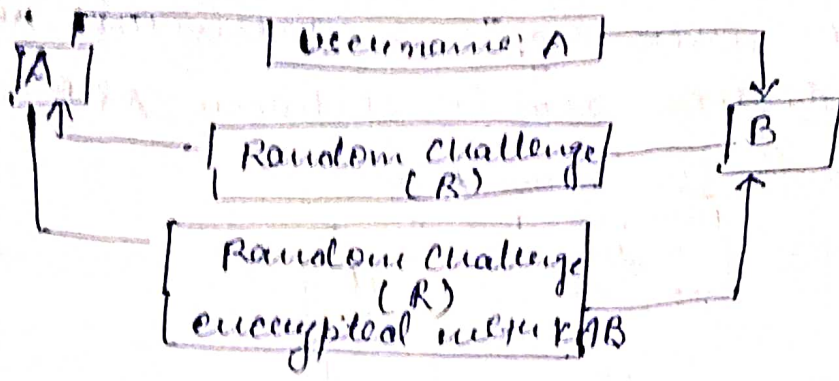 A
Username: A
B
Random Challenge
(R)
Random Challenge
(R)
encrypted with KAB